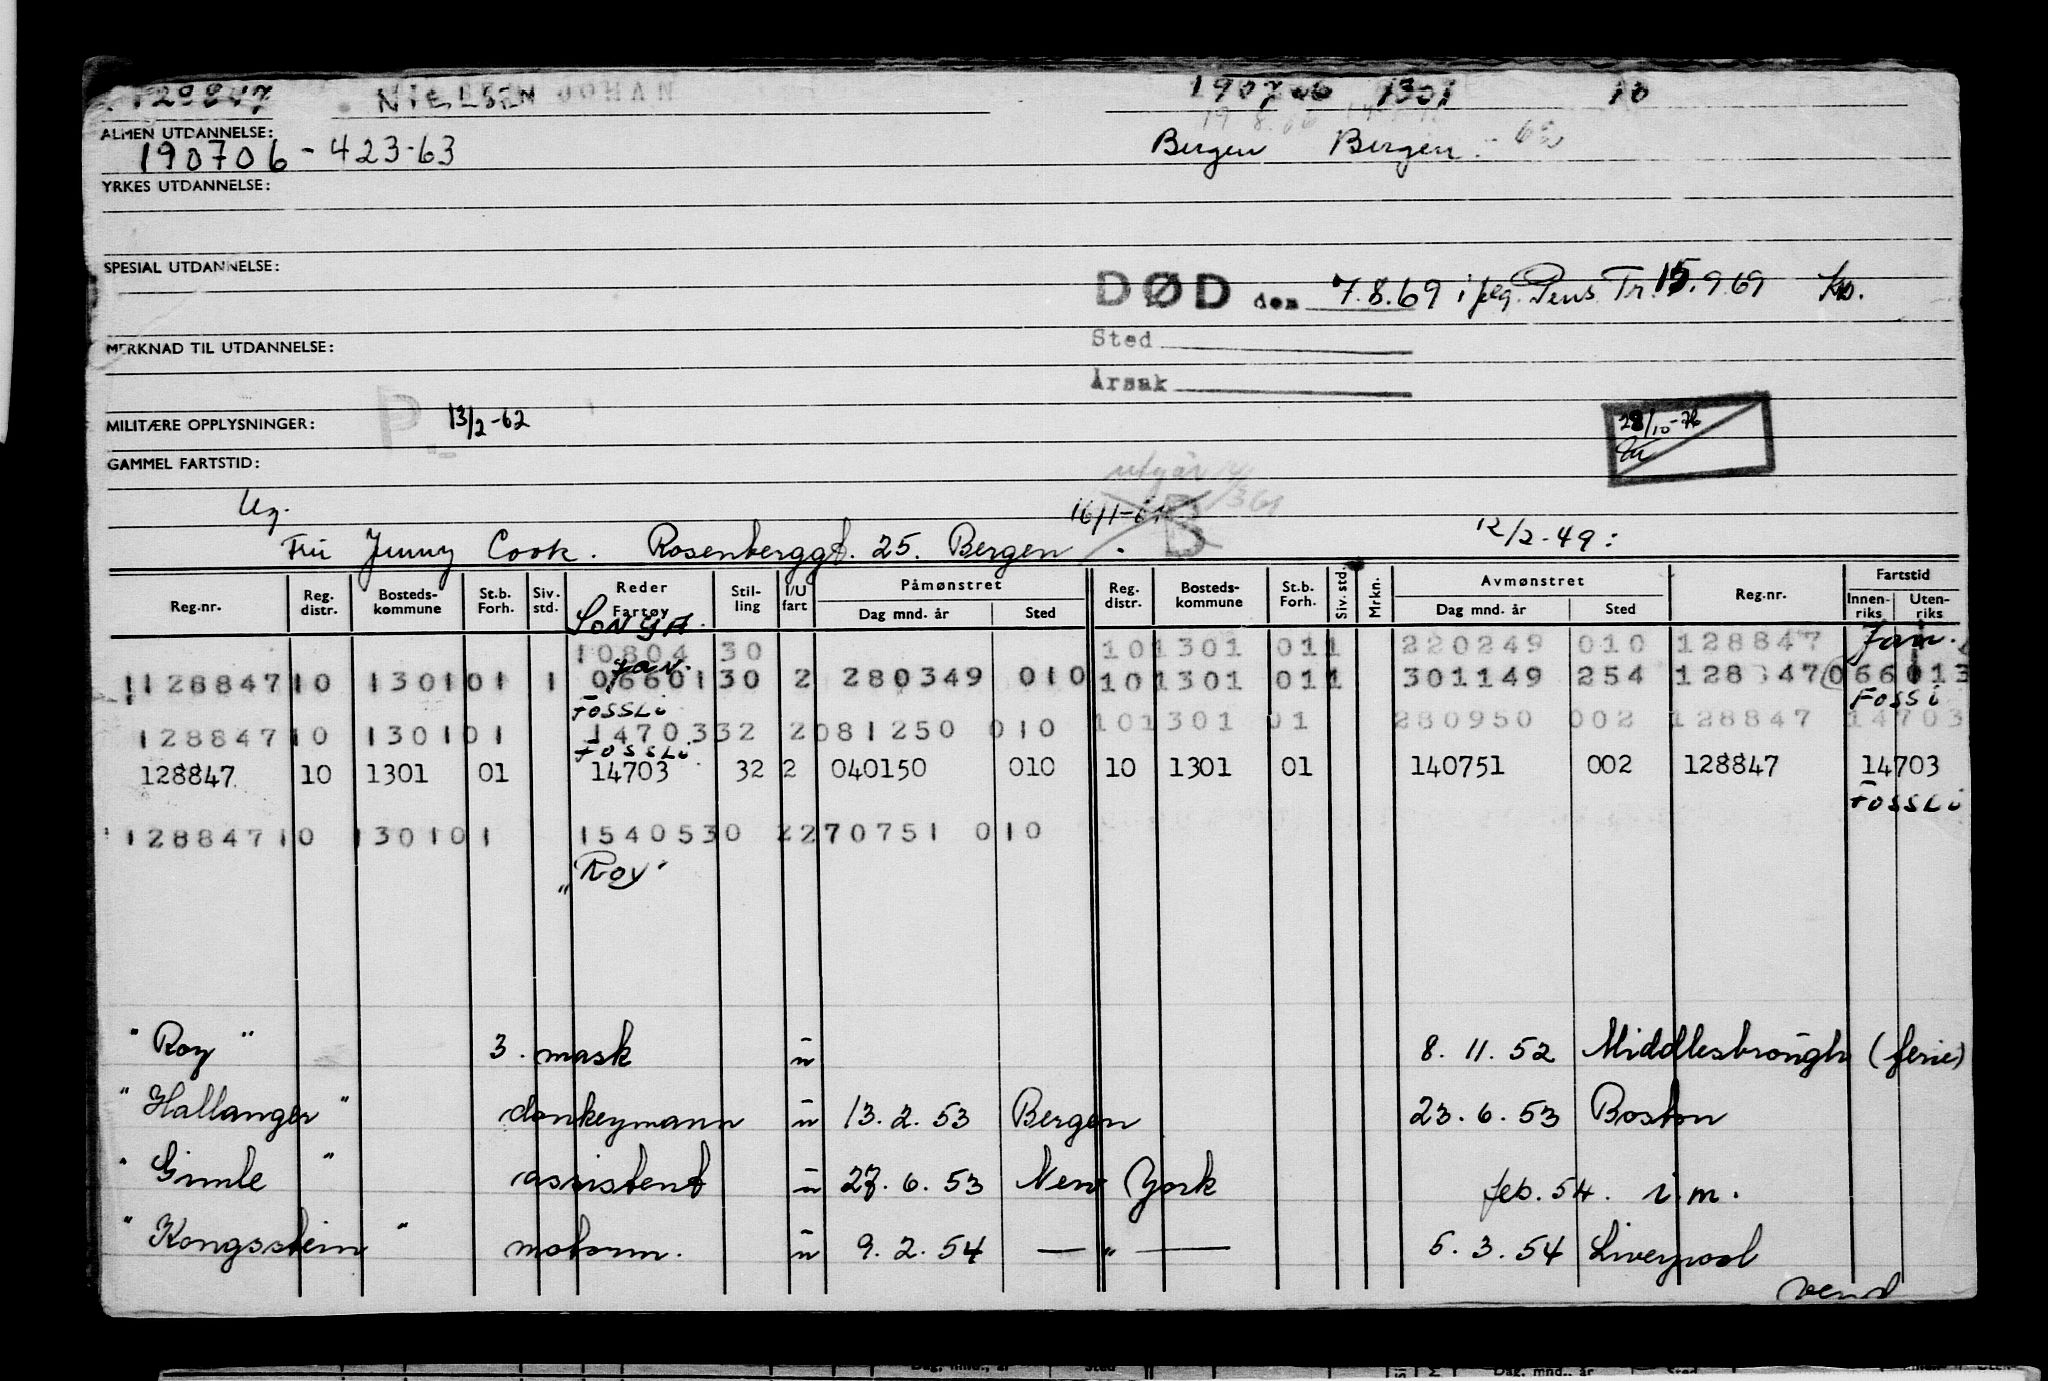 128847 NIELSEN JOHAN 190706 1301 10
ALMEN UTDANNELSE:
190706 - 423-63 Bergen Bergen. - 62
YRKES UTDANNELSE:
SPESIAL UTDANNELSE:
DØD den 7.8.69 i flg. Pens. Tr. 15.9.69
Sted
MERKNAD TIL UTDANNELSE:
Årsak
MILITÆRE OPPLYSNINGER: P 13/2-62
28/10-76
GAMMEL FARTSTID:
utgår
Ug. 16/1-61 B
Fru Jenny Cook. Rosenberggt. 25. Bergen. 12/2-49:
Reg.nr. Reg. distr. Bosteds-kommune St.b. Forh. Siv. std. Reder Fartøy Stil-ling I/U fart Påmønstret Dag mnd. år Sted Reg. distr. Bosteds-kommune St.b. Forh. Siv. std. Mrkn. Avmønstret Dag mnd. år Sted Reg.nr. Fartstid Innen-riks Uten-riks
SONJA.
10804 30 101301 011 220249 010 128847 Jan.
JAN.
128847 10 1301 01 1 06601 30 2 280349 010 101301 011 301149 254 128847 066013
FOSSLI FOSSLI
128847 10 1301 01 14703 32 2 081250 010 101301 01 280950 002 128847 14703
FOSSLI
128847 10 1301 01 14703 32 2 040150 010 10 1301 01 140751 002 128847 14703
FOSSLI
128847 10 1301 01 15405 30 2 270751 010
"Roy"
"Roy" 3. mask u 8. 11. 52 Middlesbrough (ferie)
"Hallanger" donkeymann u 13. 2. 53 Bergen 23. 6. 53 Boston
"Gimle" assistent u 27. 6. 53 New York feb. 54. i.m.
"Kongsstein" motorm. u 9. 2. 54 — " — 5. 3. 54 Liverpool
vend
Dag, mnd., år Sted Dag mnd., år Sted